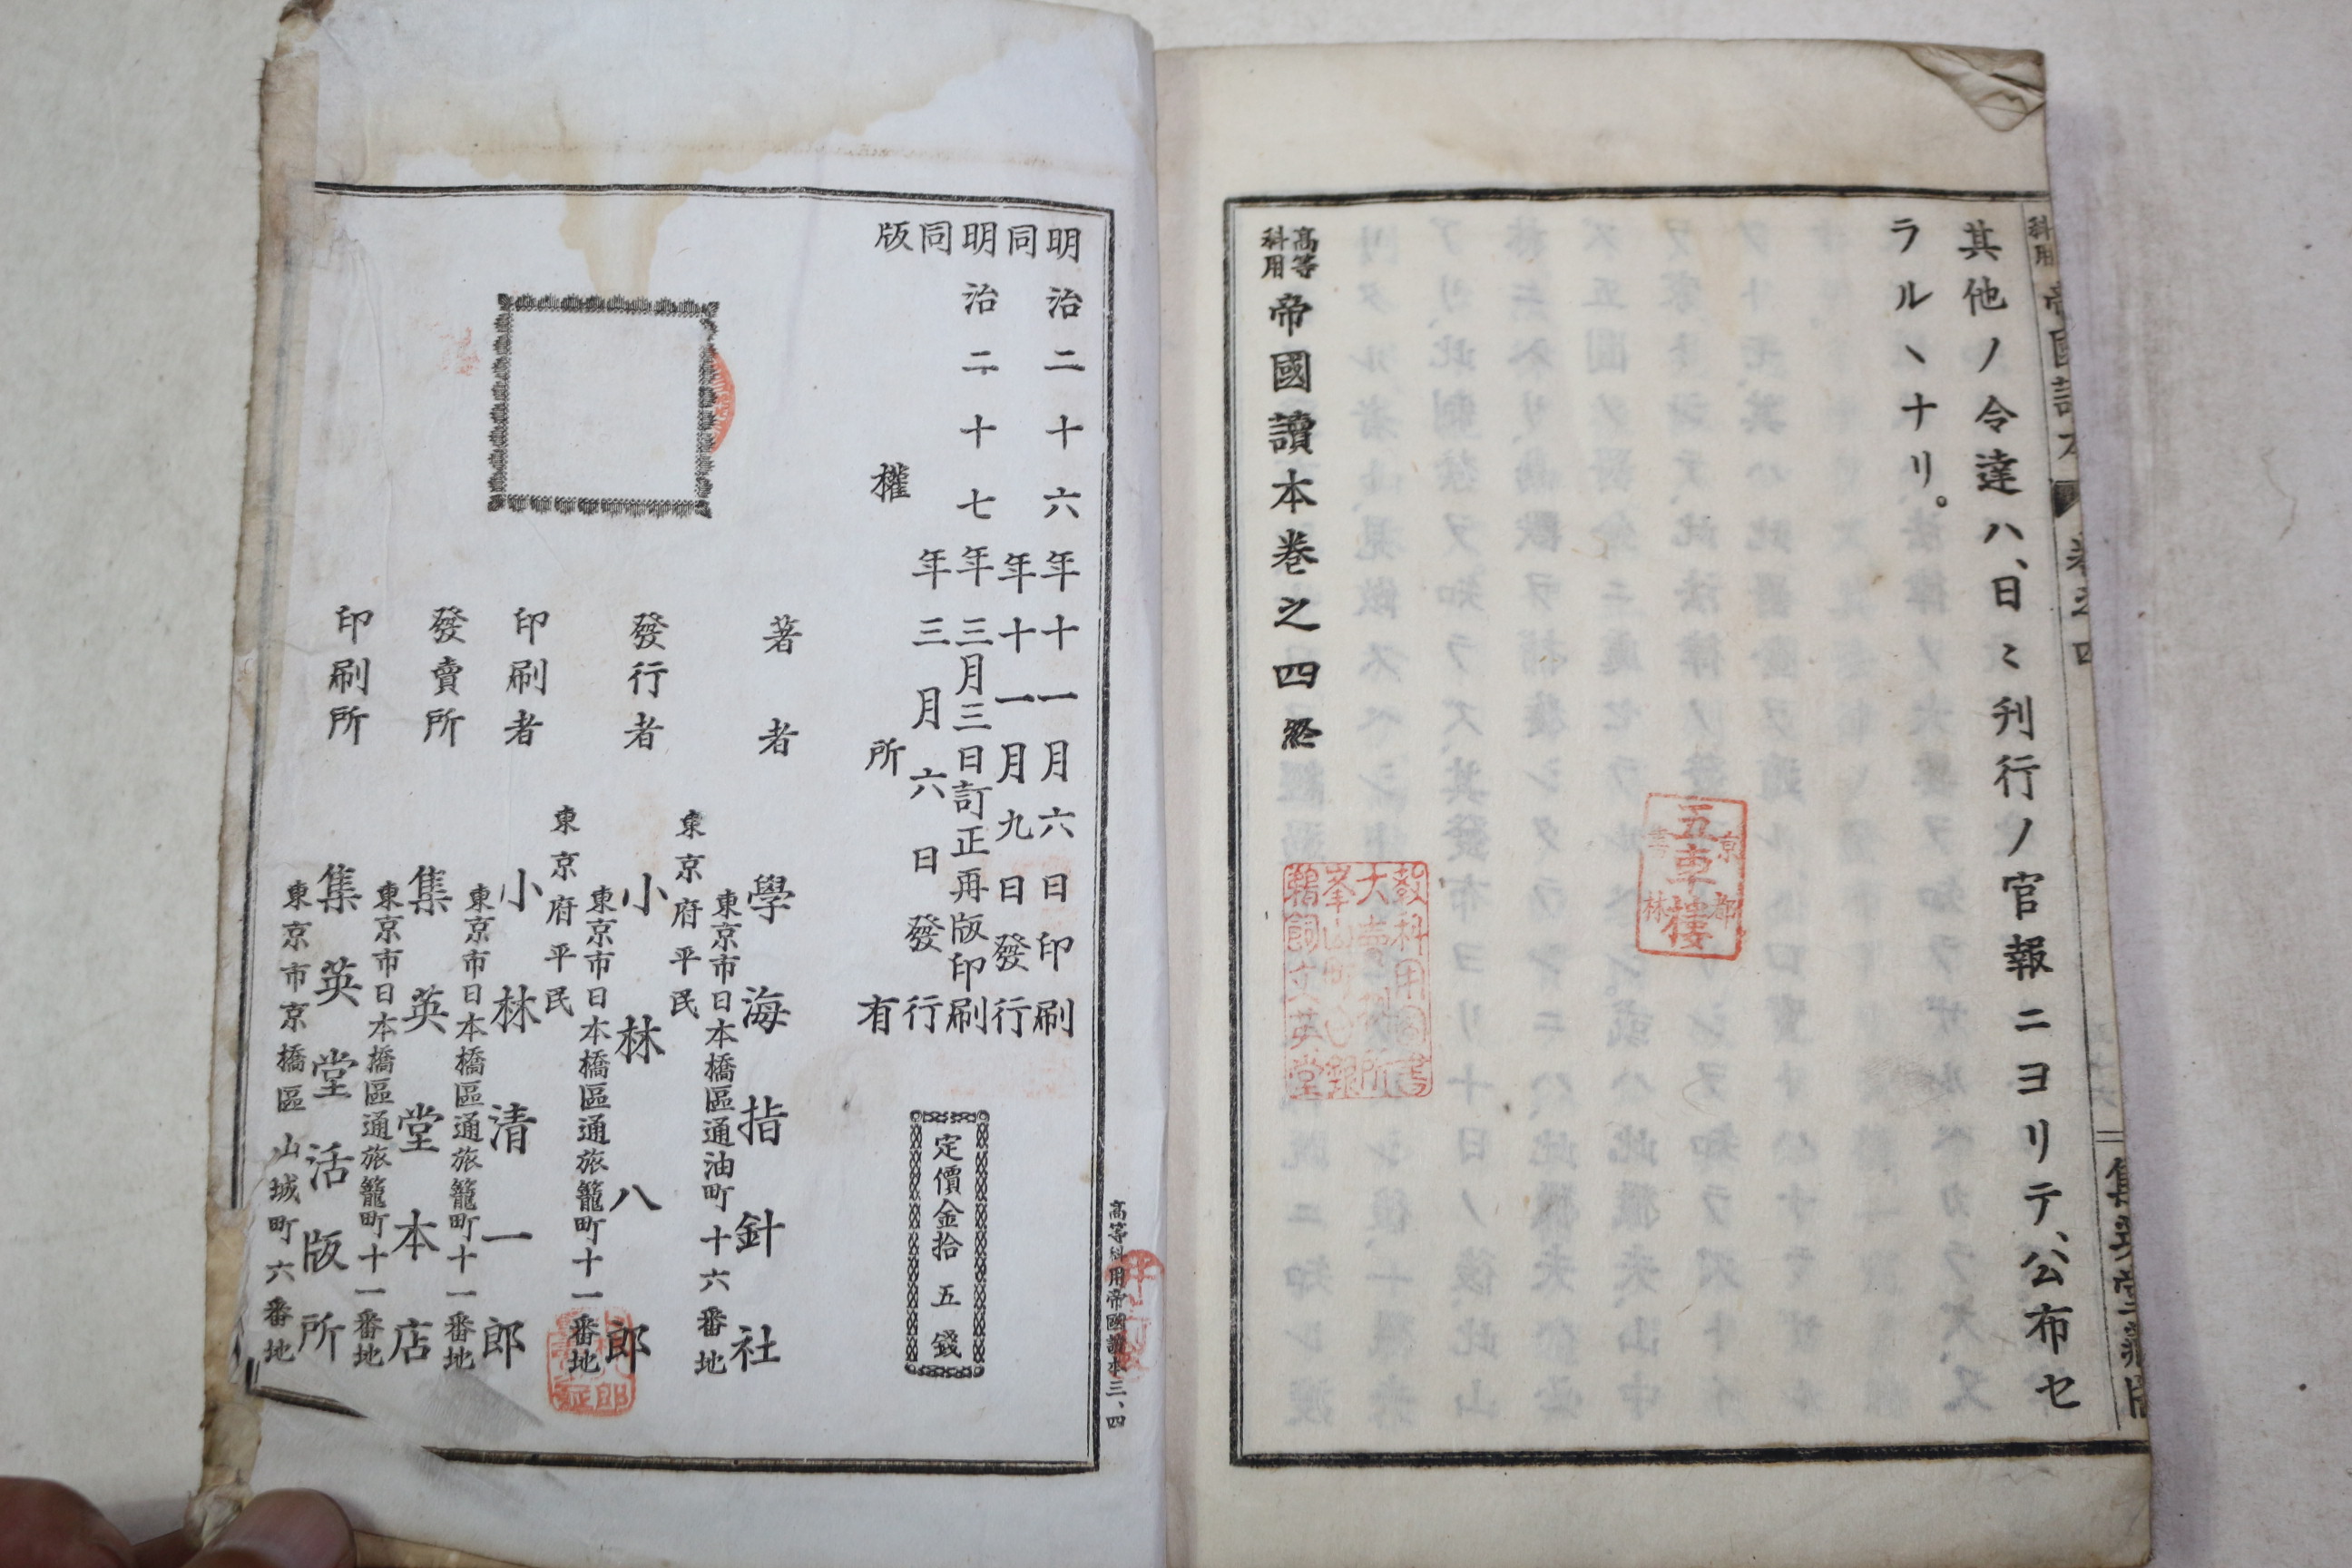 科用 帝國讀本 卷之四
其他ノ令達ハ、日〻刊行ノ官報ニヨリテ、公布セ
ラルヽナリ。
高等科用 帝國讀本卷之四 終
京都
五車樓
書林
教科用圖書
大賣捌所
峯山町
鵜飼文英堂
高等科用帝國讀本三、四
明治二十六年十一月六日印刷
同年十一月九日發行
明治二十七年三月三日訂正再版印刷
同年三月六日發行
版權所有
定價金拾五錢
著者 學海指針社
東京市日本橋區通油町十六番地
東京府平民
發行者 小林八郎
東京市日本橋區通旅籠町十一番地
東京府平民
印刷者 小林清一郎
東京市日本橋區通旅籠町十一番地
發賣所 集英堂本店
東京市日本橋區通旅籠町十一番地
印刷所 集英堂活版所
東京市京橋區山城町六番地